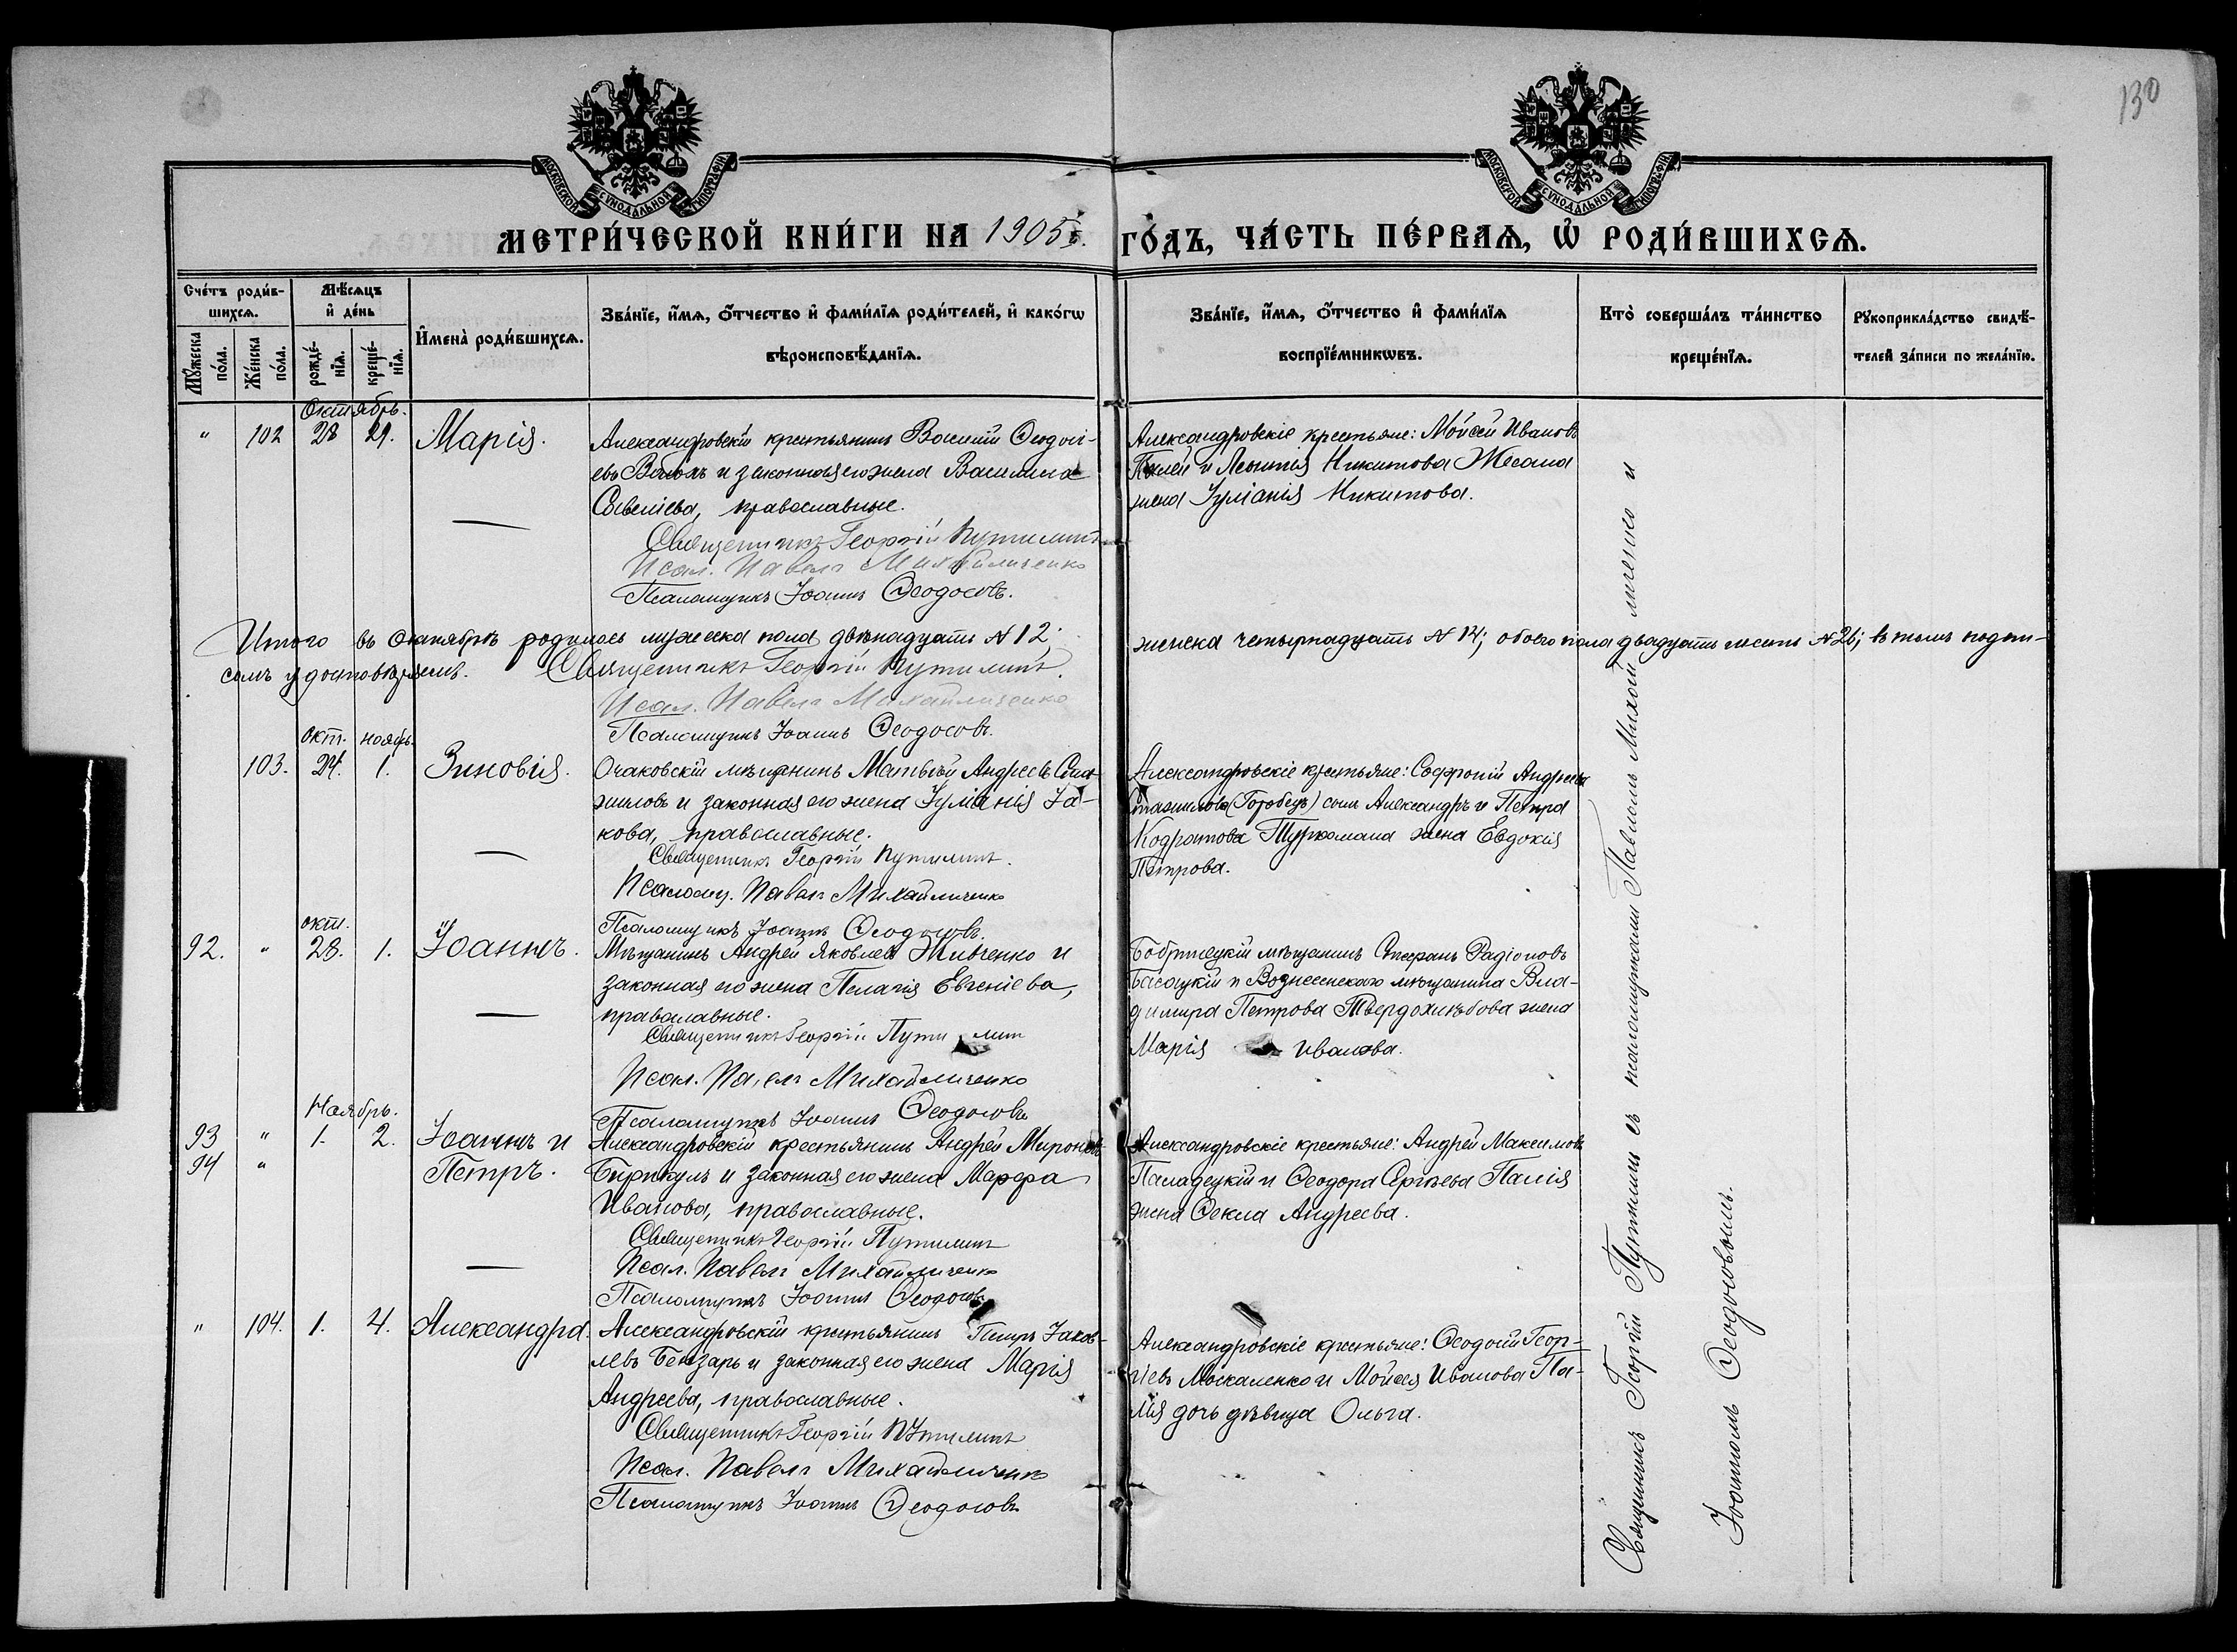 130
МОСКОВСКОЙ СѴНОДАЛЬНОЙ ТИПОГРАФІИ
МОСКОВСКОЙ СѴНОДАЛЬНОЙ ТИПОГРАФІИ
МЕТРИ́ЧЕСКОЙ КНИ́ГИ НА 1905 г. ГО́ДЪ, ЧА́СТЬ ПЕ́РВАѦ, Ѡ҆ РОДИ́ВШИХСѦ.
Сче́тъ роди́в-
шихсѧ.
Мꙋ́жеска по́ла.
Же́нска по́ла.
Мѣ́сѧцъ
и҆ де́нь
рожде́-
нїѧ.
креще́-
нїѧ.
И҆мена̀ роди́вшихсѧ.
Зва́нїе, и҆́мѧ, ѻ҆́тчество и҆ фами́лїѧ роди́телей, и҆ како́гѡ
вѣроисповѣ́данїѧ.
Зва́нїе, и҆́мѧ, ѻ҆́тчество и҆ фами́лїѧ
воспрїе́мникѡвъ.
Кто̀ соверша́лъ та́инство
креще́нїѧ.
Рꙋкоприкла́дство свидѣ́-
телей за́писи по жела́нїю.
Октябрь.
" 102 28 29. Марія.
Александровскій крестьянинъ Василій Ѳеодосі-
евъ и законная его жена Василиса
Савеліева, православные.
Священникъ Георгій Путилинъ
Псал. Павелъ Михайличенко
Псаломщикъ Іоаннъ Ѳеодосовъ.
Александровскіе крестьяне: Мойсей Ивановъ
Палій и Леонтія Никитова Жесана
жена Іуліанія Никитова.
Итого въ Октябрѣ родилось мужеска пола двѣнадцать № 12; женска четырнадцать № 14; обоего пола двадцать шесть № 26; въ томъ подпи-
сомъ удостовѣряемъ. Священникъ Георгій Путилинъ.
Псал. Павелъ Михайличенко
Псаломщикъ Іоаннъ Ѳеодосовъ.
окт. ноябрь.
103. 24. 1. Зиновія.
Очаковскій мѣщанинъ Матвѣй Андреевъ Ста-
жиловъ и законная его жена Іуліанія Іа-
кова, православные.
Священникъ Георгій Путилинъ.
Псаломщ. Павелъ Михайличенко
Псаломщикъ Іоаннъ Ѳеодосовъ.
Александровскіе крестьяне: Софроній Андреевъ
Стажилова (Горобецъ) сынъ Александръ и Петра
Кодратова Туркомана жена Евдокія
Петрова.
окт.
92. " 28. 1. Іоаннъ.
Мѣщанинъ Андрей Яковлевъ Живченко и
законная его жена Пелагія Евгеніева,
православные.
Священникъ Георгій Путилин
Псал. Павелъ Михайличенко
Псаломщикъ Іоаннъ Ѳеодосовъ
Бобринецкій мѣщанинъ Стефанъ Радіоновъ
Басацкій и Вознесенскаго мѣщанина Вла-
димира Петрова Твердохлѣбова жена
Марія Иванова.
Ноябрь.
93 " 1. 2. Іоаннъ и
94 " Петръ.
Александровскій крестьянинъ Андрей Мироновъ
и законная его жена Марфа
Иванова, православные.
Священникъ Георгій Путилинъ
Псал. Павелъ Михайличенко
Псаломщикъ Іоаннъ Ѳеодосовъ
Александровскіе крестьяне: Андрей Максимовъ
Паладецкій и Ѳеодора Сергѣева Палія
жена Ѳекла Андреева.
" 104. 1. 4. Александра.
Александровскій крестьянинъ Петръ Іаков-
левъ Бензарь и законная его жена Марія
Андреева, православные.
Священникъ Георгій Путилинъ
Псал. Павелъ Михайличенко
Псаломщикъ Іоаннъ Ѳеодосовъ
Александровскіе крестьяне: Ѳеодосій Геор-
гіевъ Москаленко и Мойсея Иванова Па-
лія дочь дѣвица Ольга.
Священникъ Георгій Путилинъ съ псаломщиками Павломъ Михайличенко и
Іоанномъ Ѳеодосовымъ.